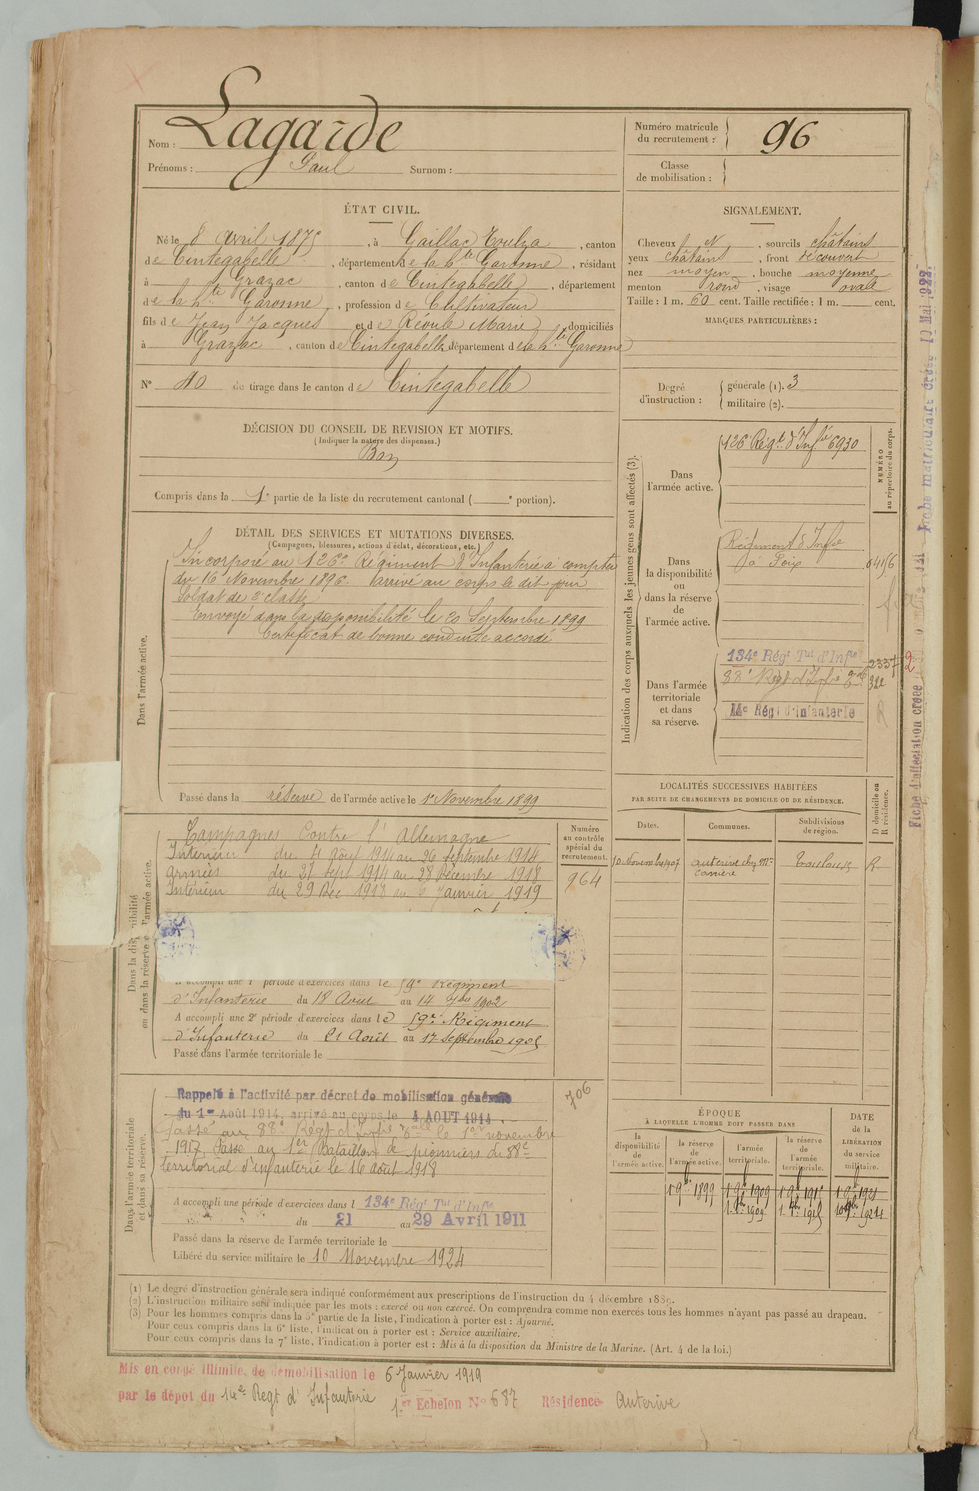 Nom : Lagarde
Prénoms : Paul Surnom :
Numéro matricule du recrutement : 96
Classe de mobilisation :
ÉTAT CIVIL.
Né le 8 Avril 1875, à Gaillac Toulza, canton
de Cintegabelle, département de la hte Garonne, résidant
à Grazac, canton de Cintegabelle, département
de la hte Garonne, profession de Cultivateur
fils de Jean Jacques et de Réoule Marie, domiciliés
à Grazac, canton de Cintegabelle, département de la hte Garonne
No 40 de tirage dans le canton de Cintegabelle
SIGNALEMENT.
Cheveux N, sourcils châtains
yeux châtains, front découvert
nez moyen, bouche moyenne
menton rond, visage ovale
Taille : 1 m. 60 cent. Taille rectifiée : 1 m. cent.
MARQUES PARTICULIÈRES :
Degré d'instruction : générale (1). 3
militaire (2).
DÉCISION DU CONSEIL DE REVISION ET MOTIFS.
(Indiquer la nature des dispenses.)
Bon
Compris dans la 1e partie de la liste du recrutement cantonal ( e portion).
DÉTAIL DES SERVICES ET MUTATIONS DIVERSES.
(Campagnes, blessures, actions d'éclat, décorations, etc.)
Dans l'armée active.
Incorporé au 126e Régiment d'Infanterie à compter
du 16 Novembre 1896. Arrivé au corps le dit jour
Soldat de 2e classe
Envoyé dans la disponibilité le 20 Septembre 1899
Certificat de bonne conduite accordé
Passé dans la réserve de l'armée active le 1er Novembre 1899
Indication des corps auxquels les jeunes gens sont affectés (3).
NUMÉRO au répertoire du corps.
Dans l'armée active.
126e Régt d'Infie 6930
Dans la disponibilité ou dans la réserve de l'armée active.
Régiment d'Infie
à Foix
Dans l'armée territoriale et dans sa réserve.
134e Régt Tal d'Infie 2337
88e Régt d'Infie
14e Régt d'Infanterie
LOCALITÉS SUCCESSIVES HABITÉES
PAR SUITE DE CHANGEMENTS DE DOMICILE OU DE RÉSIDENCE.
Dates. Communes. Subdivisions de région. D domicile ou R résidence.
10 Novembre 1907 Auterive chez Mr Carrière Toulouse R
Dans la disponibilité ou dans la réserve de l'armée active.
Numéro au contrôle spécial du recrutement.
964
Campagnes Contre l'Allemagne
Intérieur du 4 Août 1914 au 26 septembre 1914
Armées du 27 sept 1914 au 28 Décembre 1918
Intérieur du 29 Dec 1918 au 6 Janvier 1919
A accompli une 1e période d'exercices dans le 59e Régiment
d'Infanterie du 18 Aout au 14 7bre 1902
A accompli une 2e période d'exercices dans le 59e Régiment
d'Infanterie du 21 Août au 17 Septembre 1905
Passé dans l'armée territoriale le
Dans l'armée territoriale et dans sa réserve.
706
Rappelé à l'activité par décret de mobilisation générale
du 1er Août 1914, arrivé au corps le 4 AOUT 1914.
Passé au 88e Régt d'Infie le 1er novembre
1917. Passé au 1er Bataillon de pionniers du 88e
territorial d'infanterie le 16 août 1918
A accompli une période d'exercices dans l 134e Régt Tal d'Infie
du 21 au 29 Avril 1911
Passé dans la réserve de l'armée territoriale le
Libéré du service militaire le 10 Novembre 1924
ÉPOQUE
À LAQUELLE L'HOMME DOIT PASSER DANS
la disponibilité de l'armée active.
la réserve de l'armée active.
l'armée territoriale.
la réserve de l'armée territoriale.
DATE de la LIBÉRATION du service militaire.
1 9bre 1899
(1) Le degré d'instruction générale sera indiqué conformément aux prescriptions de l'instruction du 4 décembre 1889.
(2) L'instruction militaire sera indiquée par les mots : exercé ou non exercé. On comprendra comme non exercés tous les hommes n'ayant pas passé au drapeau.
(3) Pour les hommes compris dans la 5e partie de la liste, l'indication à porter est : Ajourné.
Pour ceux compris dans la 6e liste, l'indication à porter est : Service auxiliaire.
Pour ceux compris dans la 7e liste, l'indication à porter est : Mis à la disposition du Ministre de la Marine. (Art. 4 de la loi.)
Mis en congé illimité de démobilisation le 6 Janvier 1919
par le dépôt du 14e Régt d'Infanterie 1er Echelon No 687 Résidence Auterive